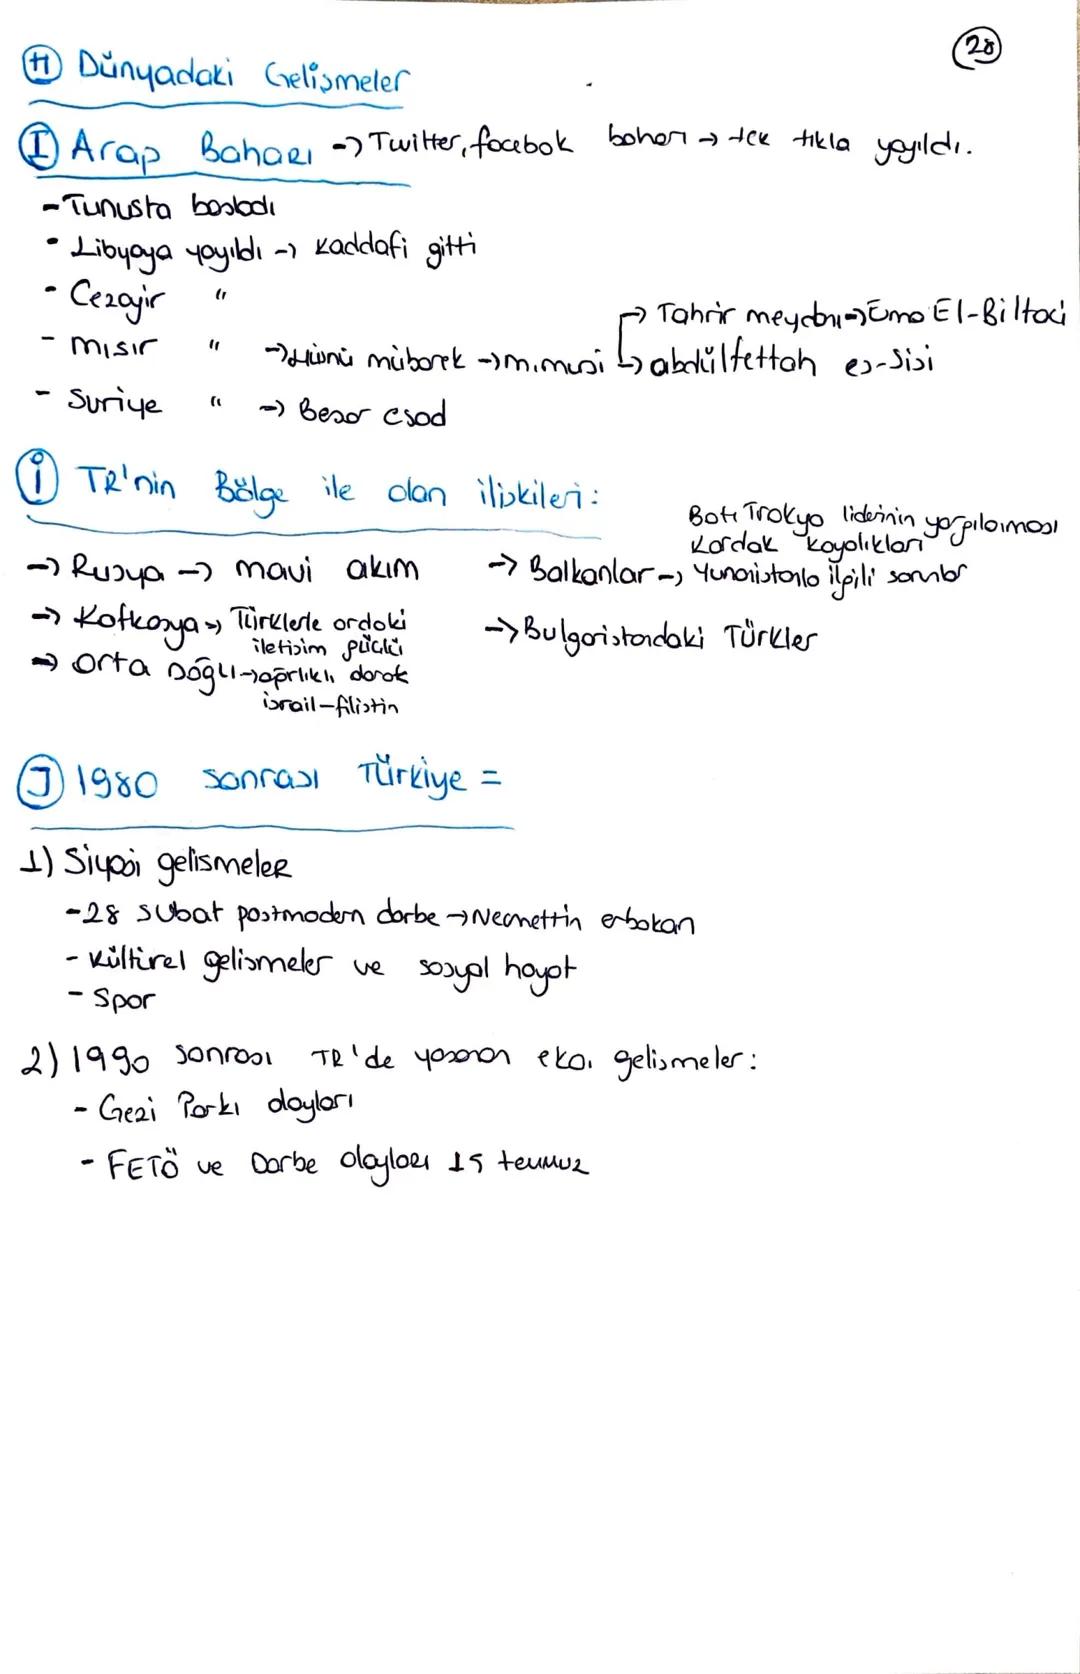 28
H Dünyadaki Gelişmeler
I Arap Baharı -> Twitter, facebok baharı -> tek tıkla yayıldı.
- Tunusta başladı
- Libyaya yayıldı -> Kaddafi gitti
- Cezayir "
-> Tahrir meydanı -> Esma El-Biltaci
- Mısır " -> Hüsnü mübarek -> m.mursi -> abdülfettah es-Sisi
- Suriye " -> Beşar esad
İ TR'nin Bölge ile olan ilişkileri:
Batı Trakya liderinin yargılanması
Kardak kayalıkları
-> Rusya -> mavi akım
-> Balkanlar -> Yunanistanla ilgili sorunlar
-> Kafkasya -> Türklerle ordaki
iletişim güçlü
-> Bulgaristandaki Türkler
-> Orta Doğu -> ağırlıklı olarak
israil-filistin
J 1980 sonrası Türkiye =
1) Siyasi gelismeler
- 28 Subat postmodern darbe -> Necmettin erbakan
- Kültürel gelişmeler ve sosyal hayat
- Spor
2) 1990 sonrası TR'de yaşanan eko. gelişmeler:
- Gezi Parkı olayları
- FETÖ ve Darbe olayları 15 temmuz